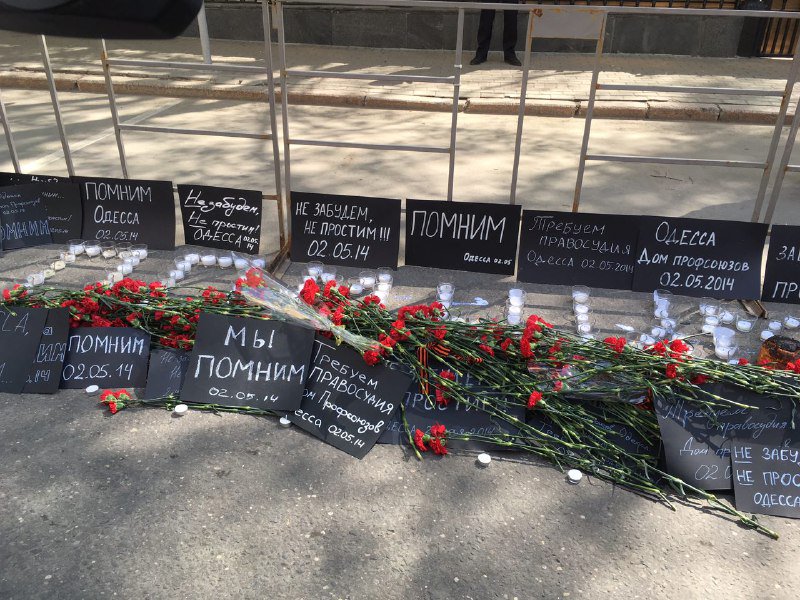 ПОМНИМ
ПОМНИМ
ОДЕССА
02.05.14
Не забудем,
Не простим!
ОДЕССА 02.05.
14
НЕ ЗАБУДЕМ,
НЕ ПРОСТИМ!!!
02.05.14
ПОМНИМ
ОДЕССА 02.05
Требуем
ПРАВОСУДИЯ
ОДЕССА 02.05.2014
ОДЕССА
Дом ПРОФСОЮЗОВ
02.05.2014
ЗА
НЕ
02
ПОМНИМ
02.05.14
МЫ
ПОМНИМ
02.05.14
Требуем
ПРАВОСУДИЯ
Дом Профсоюзов
02.05.14
Требуем
Правосудия
Дом
02.0
НЕ ЗАБУДЕМ
НЕ ПРОСТИ
ОДЕССА